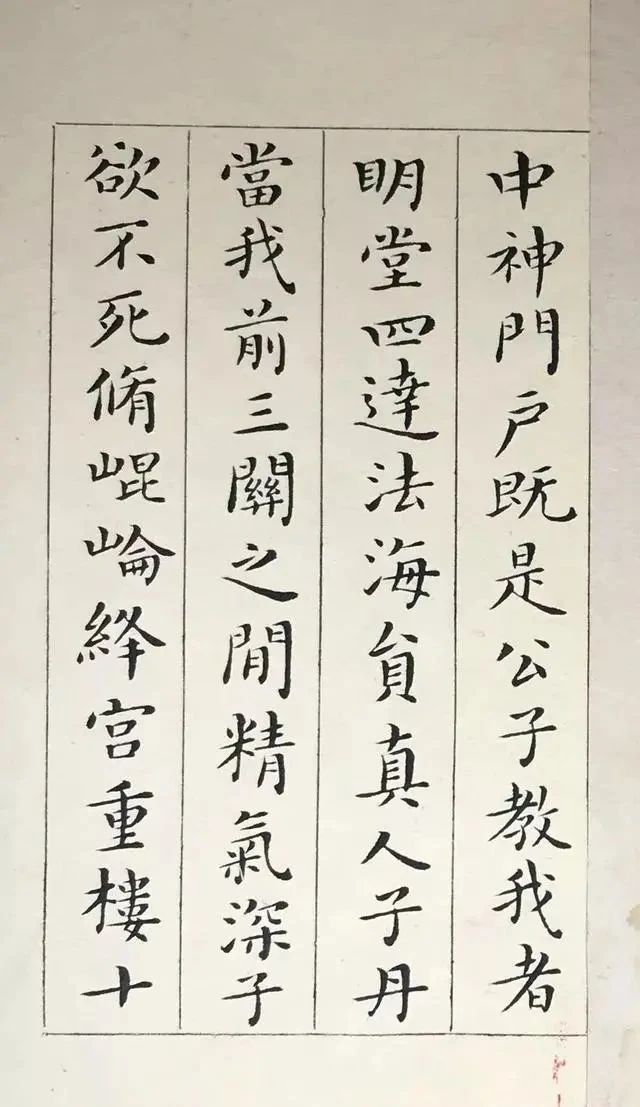 中神門户既是公子教我者
明堂四達法海貟真人子丹
當我前三關之間精氣深子
欲不死脩崐崘絳宫重樓十